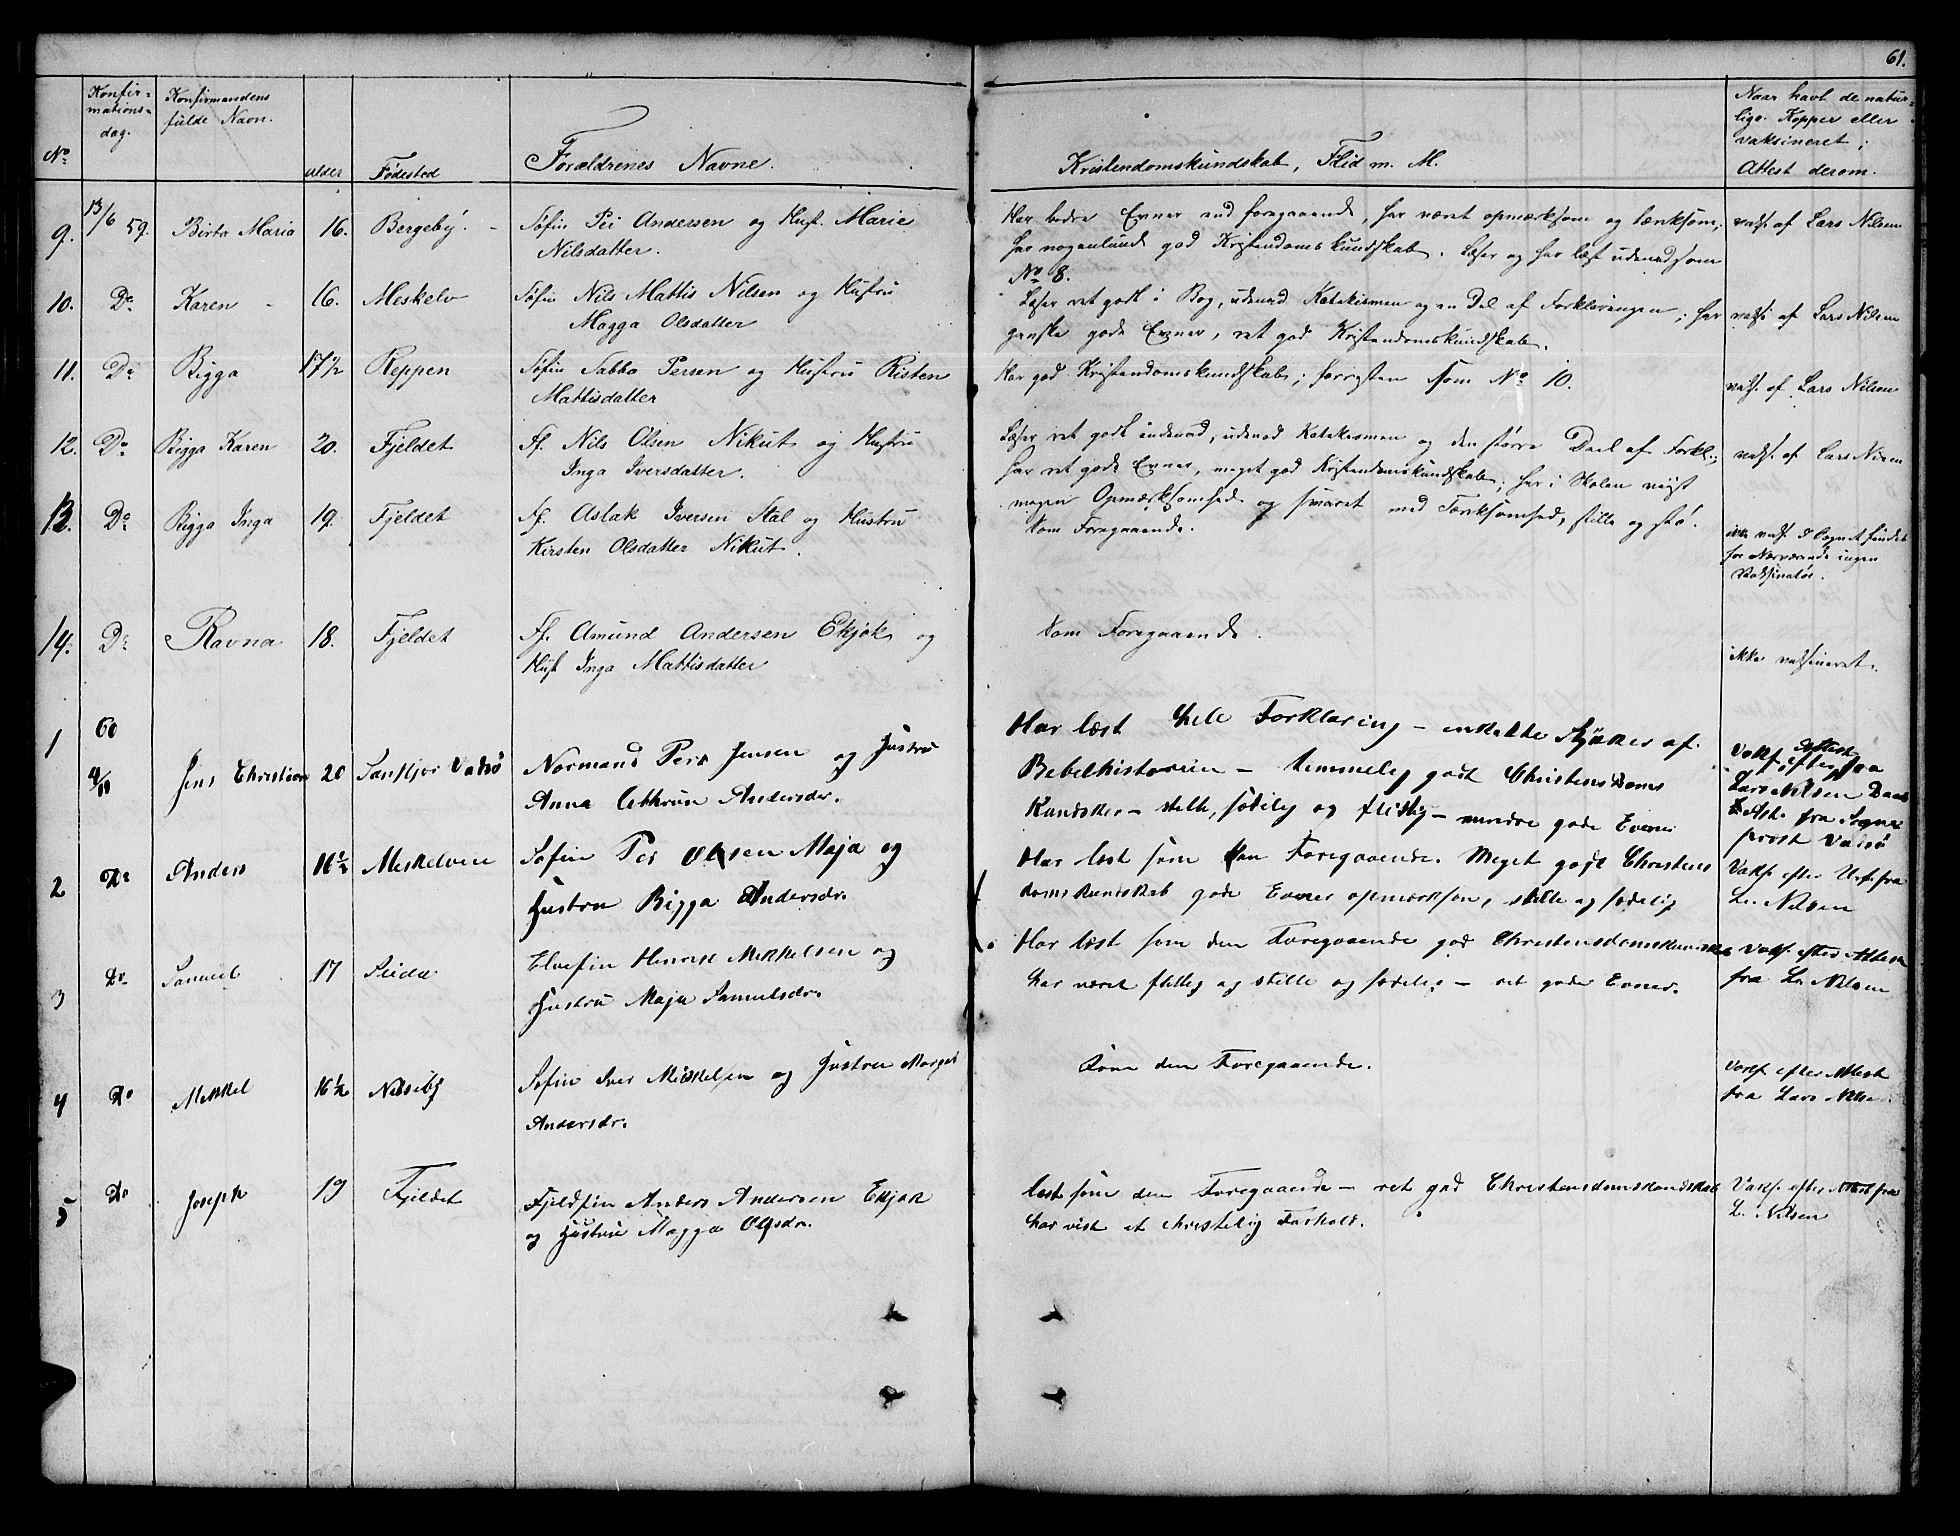 61.
No
Konfir-
mations-
dag.
Konfirmandens
fulde Navn.
alder
Fødested
Forældrenes Navne.
Kristendomskundskab, Flid m. M.
Naar havt de natur-
lige Kopper eller
vaksineret;
Attest derom.
9. 13/6 59. Birta Maria 16. Bergeby. Søfin Per Andersen og Hust. Marie
Nilsdatter.
Har bedre Evner end foregaaende, har været opmærksom og lænksom,
har nogenlunde god Kristendomskundskab. Læser og har læst udenad som
No 8.
vaks. af Lars Nilsen
10. Do Karen 16. Meskelv Søfin Nils Mattis Nilsen og Hustru
Magga Olsdatter
Læser ret godt i Bog, udenad Katekismen og en Del af Forklaringen; har
ganske gode Evner, ret god Kristendomskundskab.
vaks. af Lars Nilsen
11. Do Bigga 17 1/2 Reppen Søfin Sabba Persen og Hustru Risten
Mattisdatter
Har god Kristendomskundskab; forresten som No 10.
vaks. af Lars Nilsen
12. Do Bigga Karen 20. Fjeldet Ff. Nils Olsen Nikut og Hustru
Inga Iversdatter.
Læser ret godt indenad, udenad Katekismen og den større Deel af Forkl.;
har ret gode Evner, meget god Kristendomskundskab; har i Skolen viist
megen Opmærksomhed og svaret med Tænksomhed, stille og
vaks. af Lars Nilsen
13. Do Bigga Inga 19. Fjeldet Ff. Aslak Iversen Stal og Hustru
Kirsten Olsdatter Nikut.
Som Foregaaende.
ikke vaks. I Sognet findes
for Nærværende ingen
Vaksinatør.
14. Do Ravna 18. Fjeldet Ff. Amund Andersen Ekjok og
Hust Inga Mattisdatter
Som Foregaaende.
ikke vaksineret.
60
1 4/11 Jens Christian 20 Vadsø Normand Per Jensen og Hustru
Anna Andersdr.
Har læst hele Forklaring – enkelte Stykker af
Bibelhistorien – temmelig godt Christensdoms
Kundskab – stille, sædelig og flittig – mindre gode Evner
Vaks. efter Attest fra
Lars Nilsen
Attest fra Sogne
prest Vadsø
2 Do Anders 16 1/2 Meskelven Søfin Per Olsen Maja og
Hustru Bigga Andersdr.
Har læst som den Foregaaende. Meget godt Christens
domskundskab gode Evner opmærksom, stille og sædelig
Vaks. efter fra
L. Nilsen
3 Do Samuel 17 Seida Elvefin Henrik Mikkelsen og
Hustru Maja Samuelsdr.
Har læst som den Foregaaende god Christensdomskundskab
har været flittig og stille og sædelig – ret gode Evner.
Vaks. efter Attest
fra L. Nilsen
4 Do Mikkel 16 1/2 Nesseby Søfin Iver Mikkelsen og Hustru Margit
Andersdr.
Som den Foregaaende.
Vaks. efter Attest
fra Lars Nilsen
5 Do Joseph 19 Fjeldet Fjeldfin Anders Andersen Ekjok
og Hustru Magga Olsdr.
læst som den Foregaaende – ret god Christensdomskundskab
har vist et christelig Forhold.
Vaks. efter Attest fra
L. Nilsen